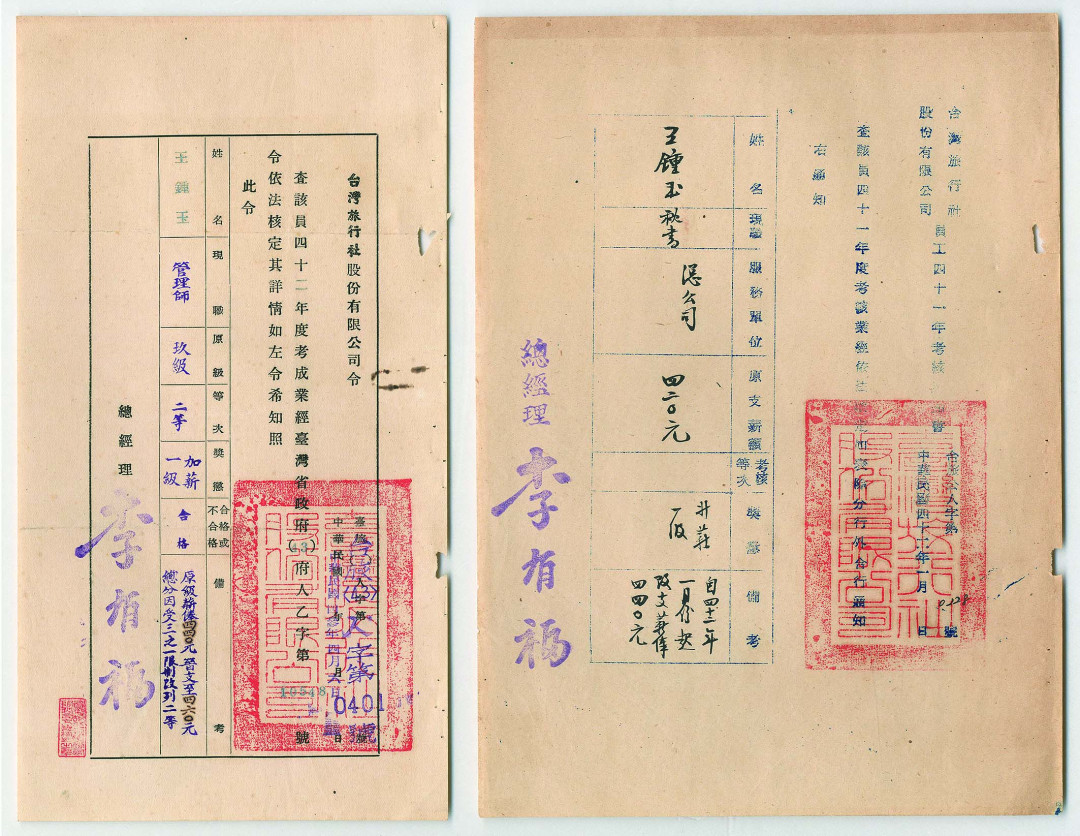 台灣旅行社股份有限公司令
查該員四十二年度考成業經臺灣省政府(43)府人乙字第
令依法核定其詳情如左令希知照
此令
姓名
現職
原級
等次
獎懲
合格或不合格
備考
王鍾玉
管理師
玖級
二等
加薪一級
合格
原級薪俸四四〇元晉支至四六〇元
總分因受三之一限制改列二等
總經理
李有福
人字第
0401
號
台灣旅行社
股份有限公司
員工四十一年考核
查該員四十一年度考核業經依
分行外合行通知
右通知
中華民國四十二年一月 日
號
姓名
現職
服務單位
原支薪額
考核等次
獎懲
備考
王鍾玉
秘書
總公司
四二〇元
升莊
一級
自四十二年
一月份起
改支薪俸
四四〇元
總經理
李有福